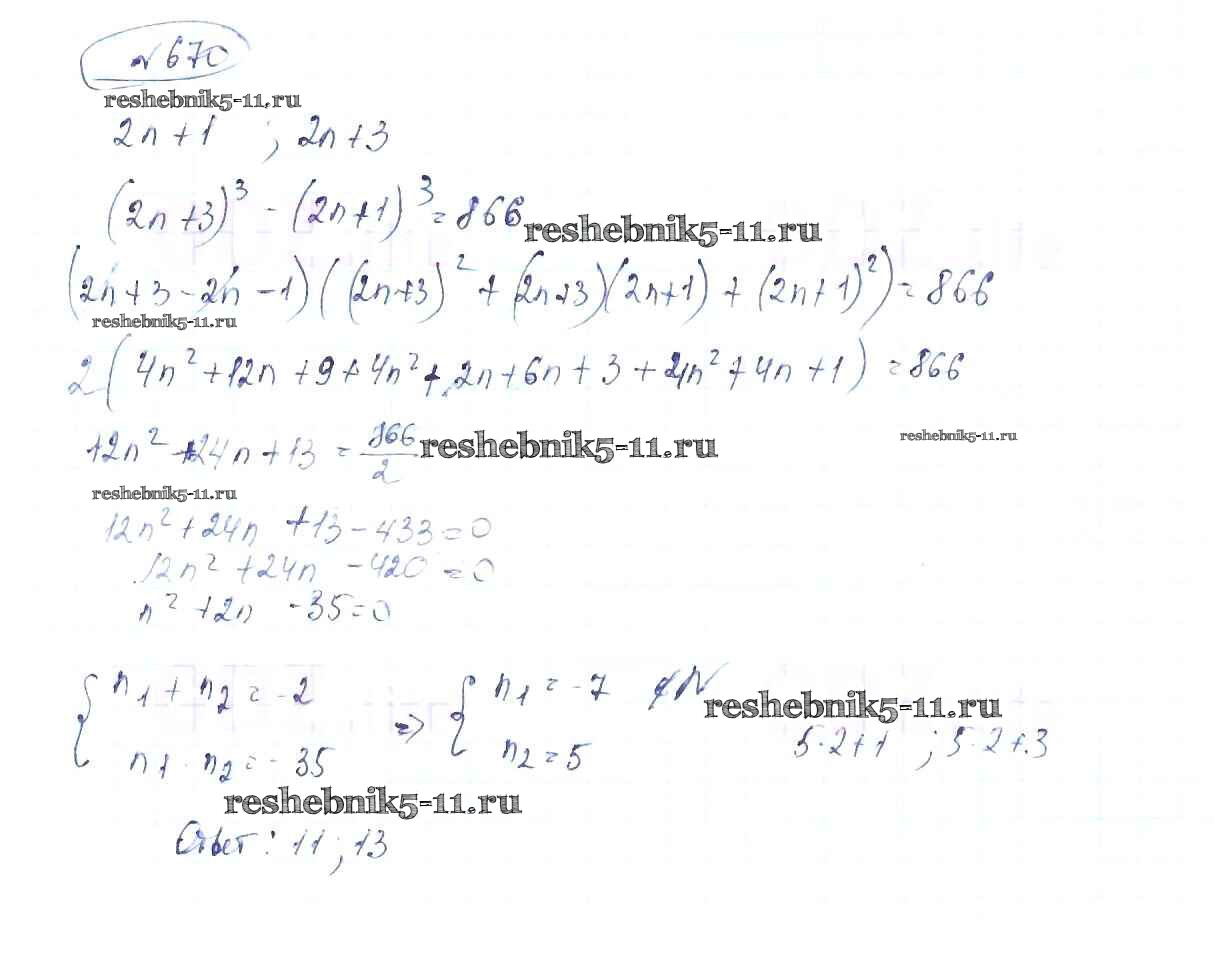 № 670
reshebnik5-11.ru
2n + 1 ; 2n + 3
(2n + 3)³ - (2n + 1)³ = 866 reshebnik5-11.ru
(2n + 3 - 2n - 1)((2n+3)² + (2n+3)(2n+1) + (2n+1)²) = 866
reshebnik5-11.ru
2(4n² + 12n + 9 + 4n² + 2n + 6n + 3 + 4n² + 4n + 1) = 866
12n² + 24n + 13 = 866/2 reshebnik5-11.ru reshebnik5-11.ru
reshebnik5-11.ru
12n² + 24n + 13 - 433 = 0
12n² + 24n - 420 = 0
n² + 2n - 35 = 0
{ n₁ + n₂ = -2 => { n₁ = -7 ∉ N reshebnik5-11.ru
n₁ · n₂ = -35 n₂ = 5 5·2+1 ; 5·2+3
reshebnik5-11.ru
Ответ: 11 ; 13